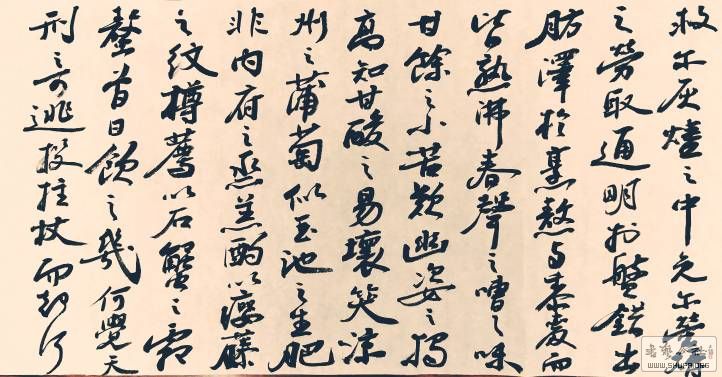 救尒灰燼之中免尒螢爝
之勞取通明於盤錯出
肪澤於烹熬與黍麥而
皆熟沸春聲之嘈〻味
甘餘之小苦歎幽姿之獨
高知甘酸之易壞笑涼
州之蒲萄似玉池之生肥
非內府之烝羔酌以癭藤
之紋樽薦以石蟹之霜
螯曾日飲之幾何覺天
刑之可逃投拄杖而起行
WWW.SHUFA.ORG